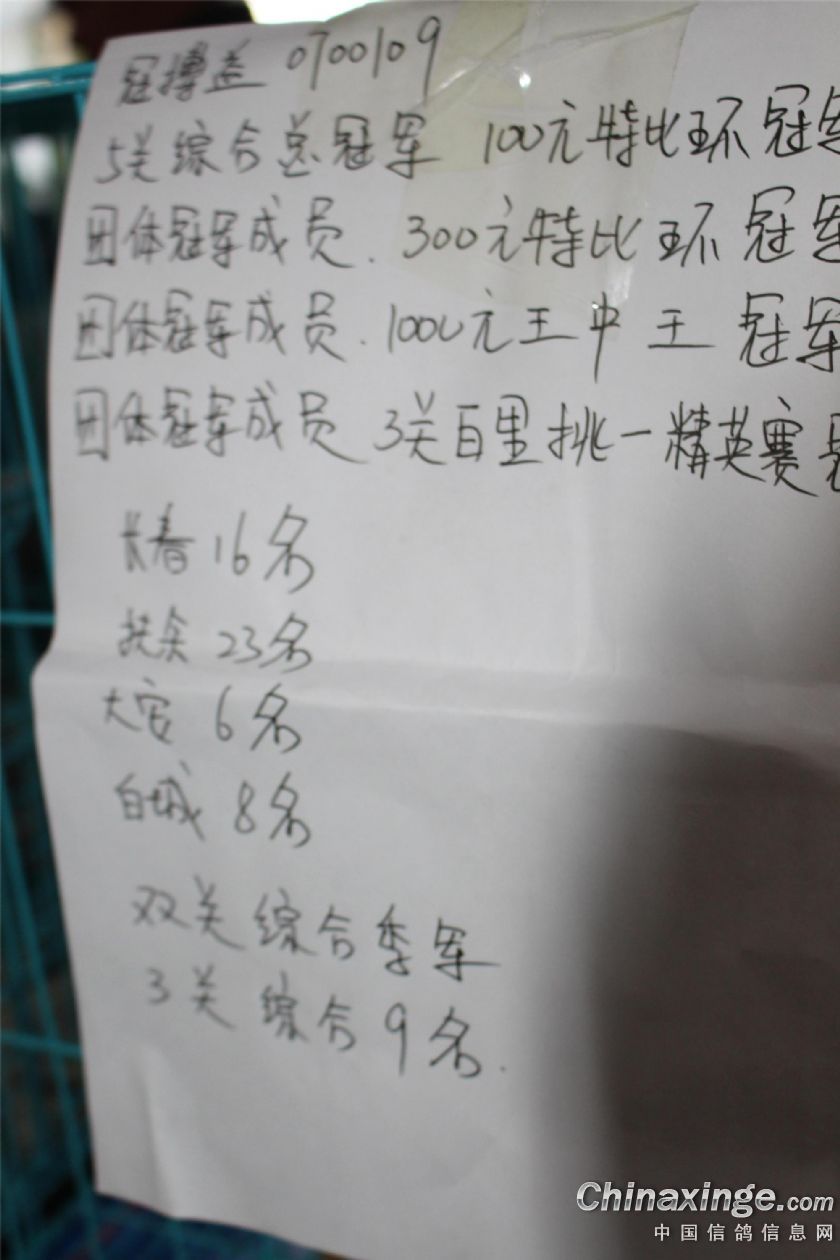 冠搏益 0700109
5关综合总冠军 100元特比环冠军
团体冠军成员.300元特比环冠军
团体冠军成员.1000元王中王 冠军
团体冠军成员 3关百里挑一精英赛
长春16名
扶余 23名
大安 6名
白城 8名
双关综合季军
3关综合9名.
Chinaxinge.com
中国信鸽信息网